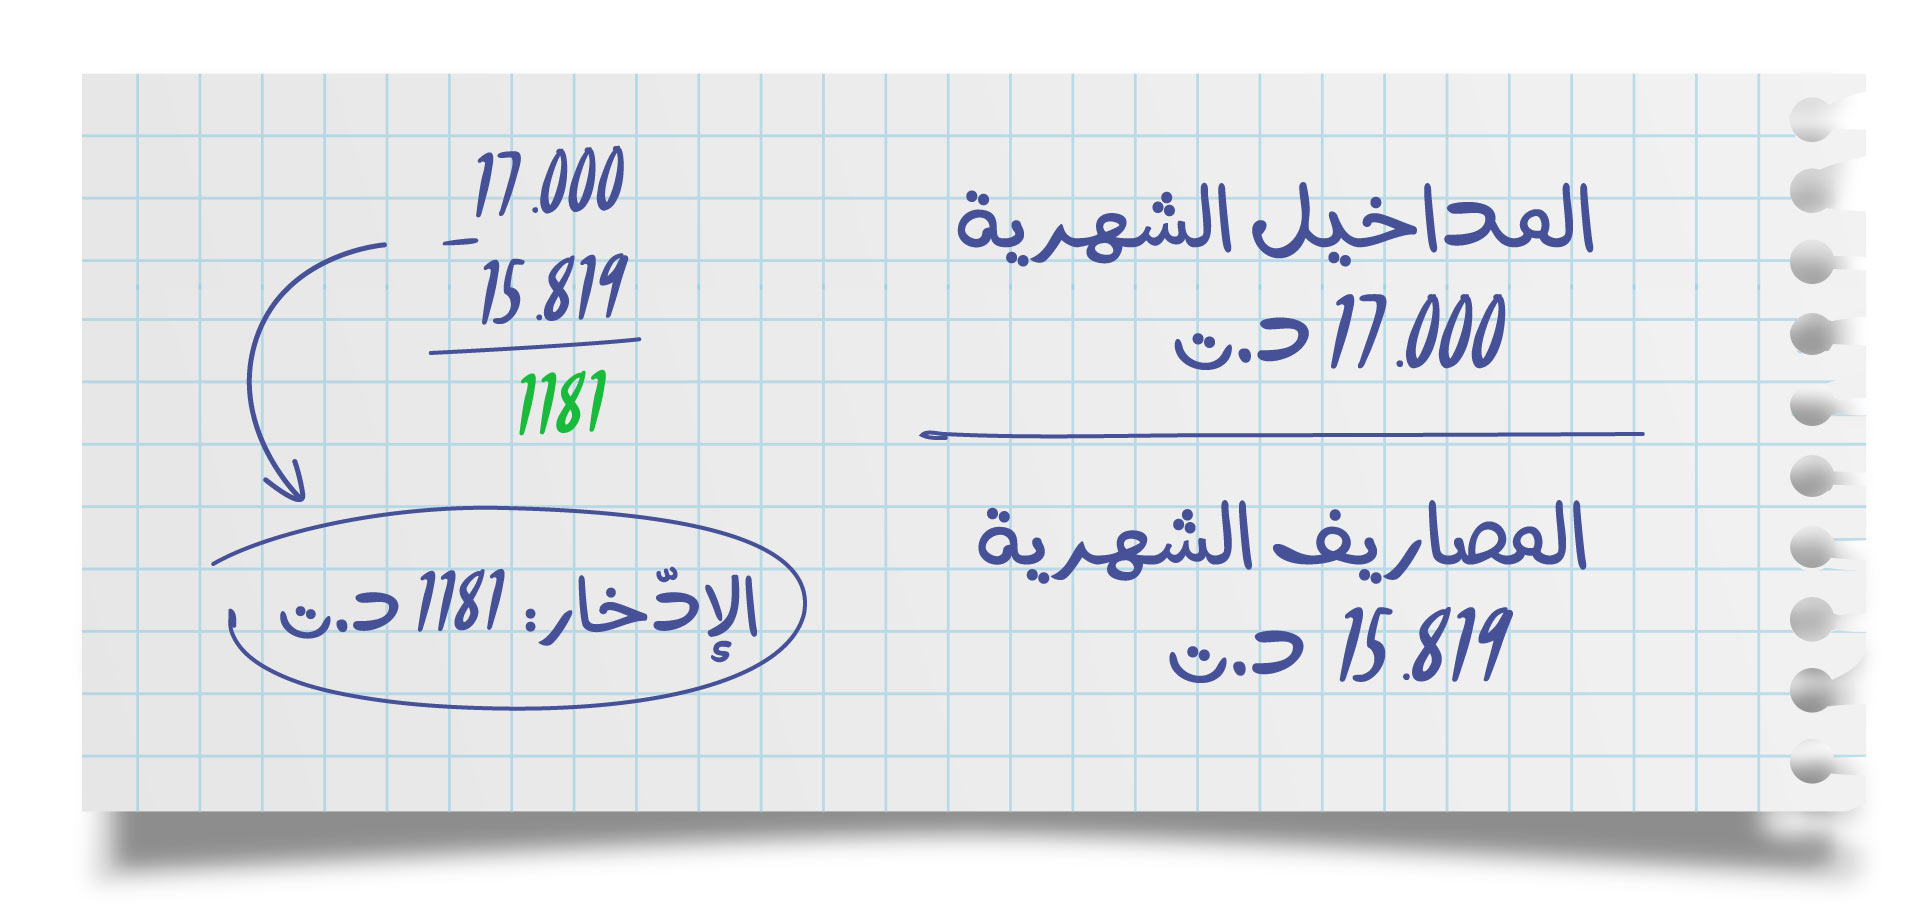 المداخيل الشهرية
17.000 د.ت
المصاريف الشهرية
15.819 د.ت
17.000
-
15.819
1181
الإدّخار: 1181 د.ت